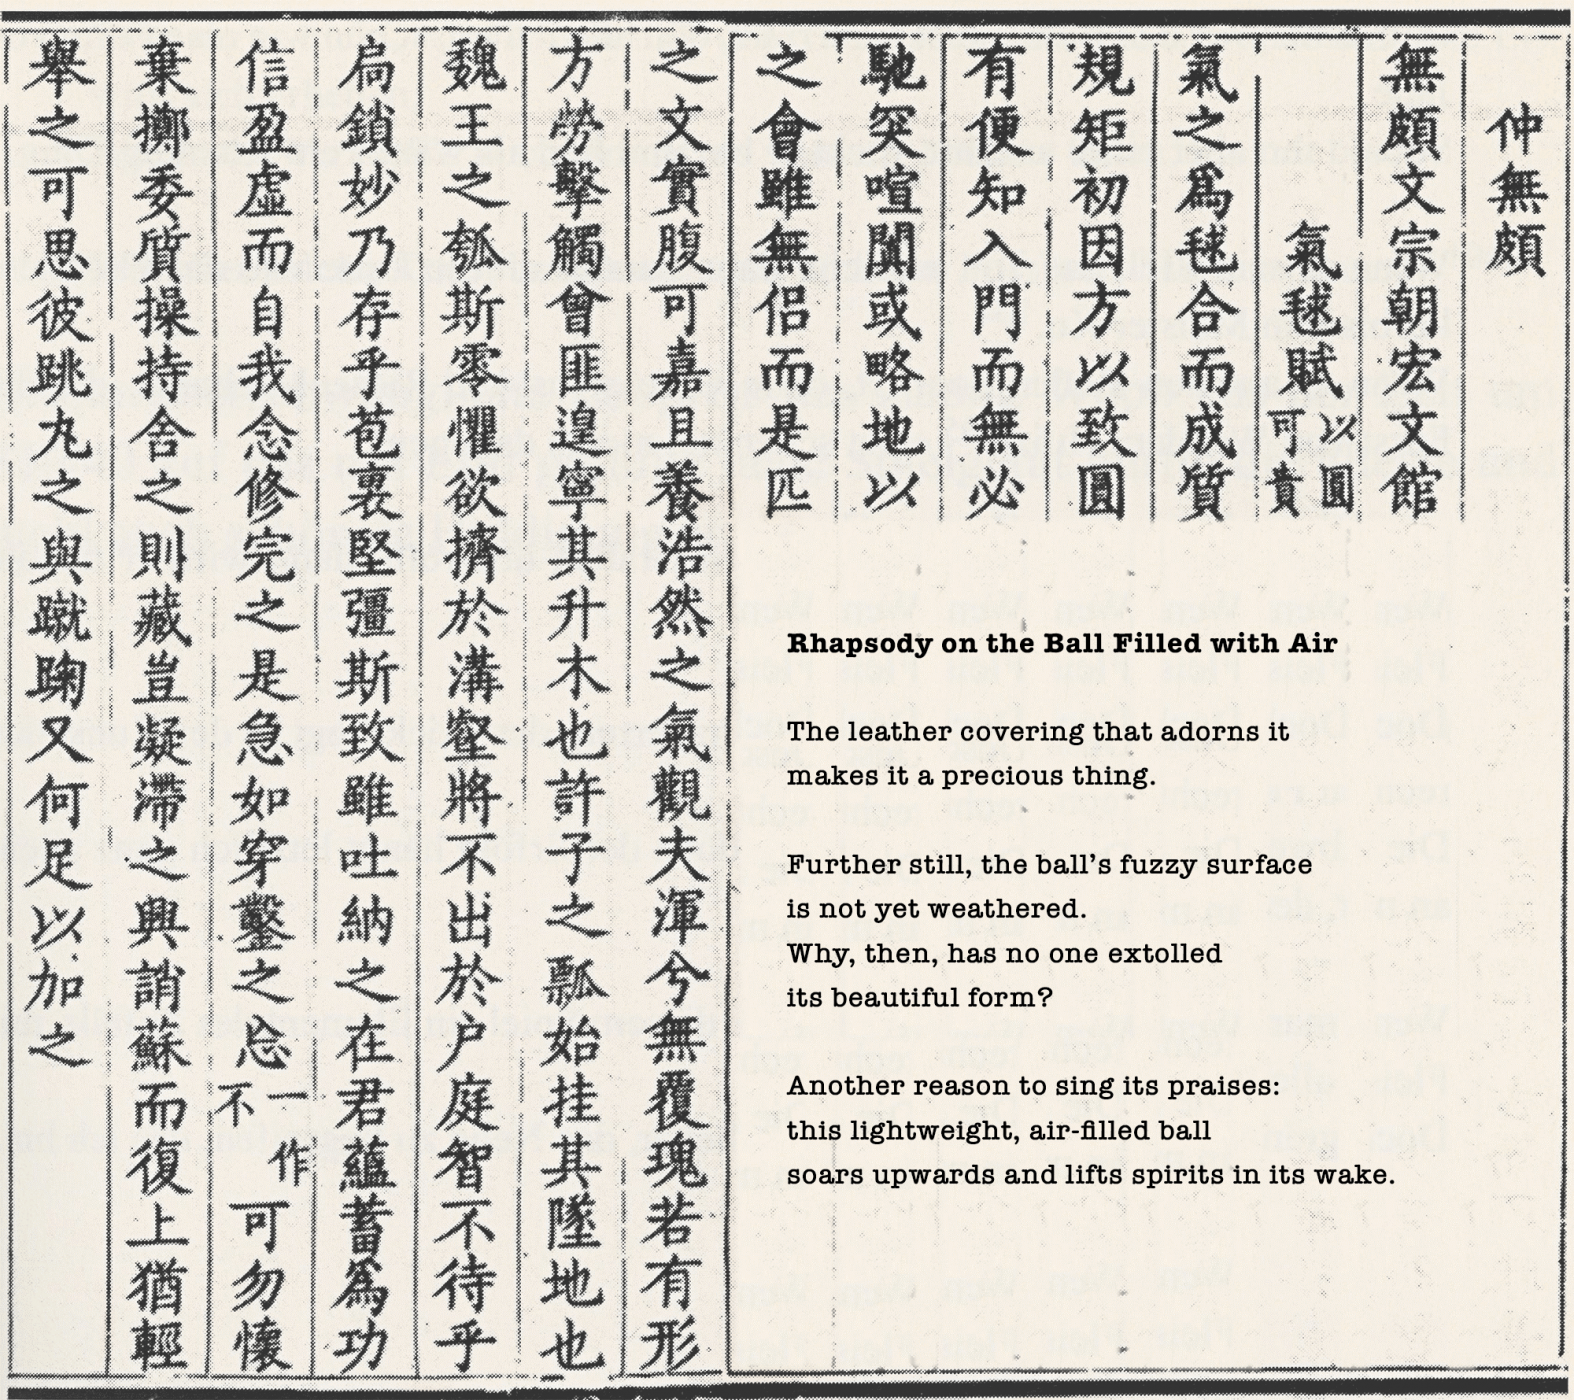 仲無頗
無頗文宗朝宏文館
氣毬賦以圓可貴
氣之爲毬合而成質
規矩初因方以致圓
有便知入門而無必
馳突喧闐或略地以
之會雖無侶而是匹
之文實腹可嘉且養浩然之氣觀夫渾兮無覆瑰若有形
方勞擊觸曾匪遑寧其升木也許子之瓢始挂其墜地也
魏王之瓠斯零懼欲擠於溝壑將不出於户庭智不待乎
扃鎖妙乃存乎苞裹堅彊斯致雖吐納之在君蘊蓄爲功
信盈虚而自我念修完之是急如穿鑿之忩一作不可勿懷
棄擲委質操持舍之則藏豈凝滯之興誚蘇而復上猶輕
舉之可思彼跳丸之與蹴踘又何足以加之
Rhapsody on the Ball Filled with Air
The leather covering that adorns it
makes it a precious thing.
Further still, the ball's fuzzy surface
is not yet weathered.
Why, then, has no one extolled
its beautiful form?
Another reason to sing its praises:
this lightweight, air-filled ball
soars upwards and lifts spirits in its wake.